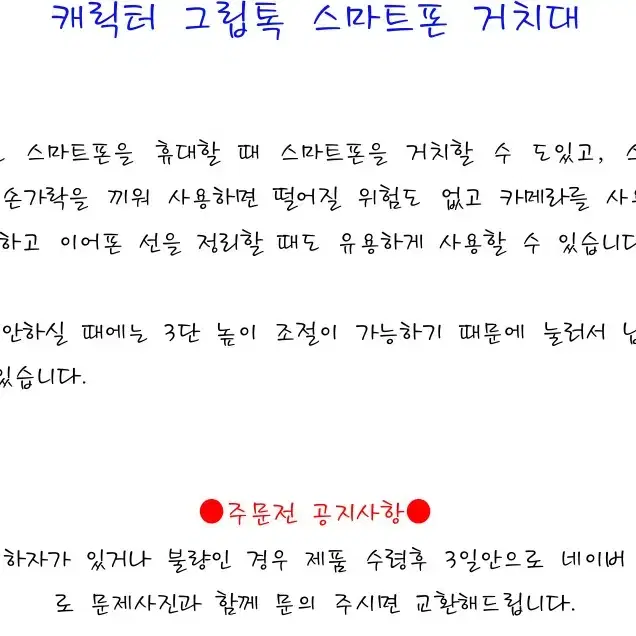 캐릭터 그립톡 스마트폰 거치대
스마트폰을 휴대할 때 스마트폰을 거치할 수 도있고,
손가락을 끼워 사용하면 떨어질 위험도 없고 카메라를
하고 이어폰 선을 정리할 때도 유용하게 사용할 수 있습니다
안하실 때에는 3단 높이 조절이 가능하기 때문에 눌러서
있습니다.
●주문전 공지사항●
하자가 있거나 불량인 경우 제품 수령후 3일안으로 네이버
로 문제사진과 함께 문의 주시면 교환해드립니다.